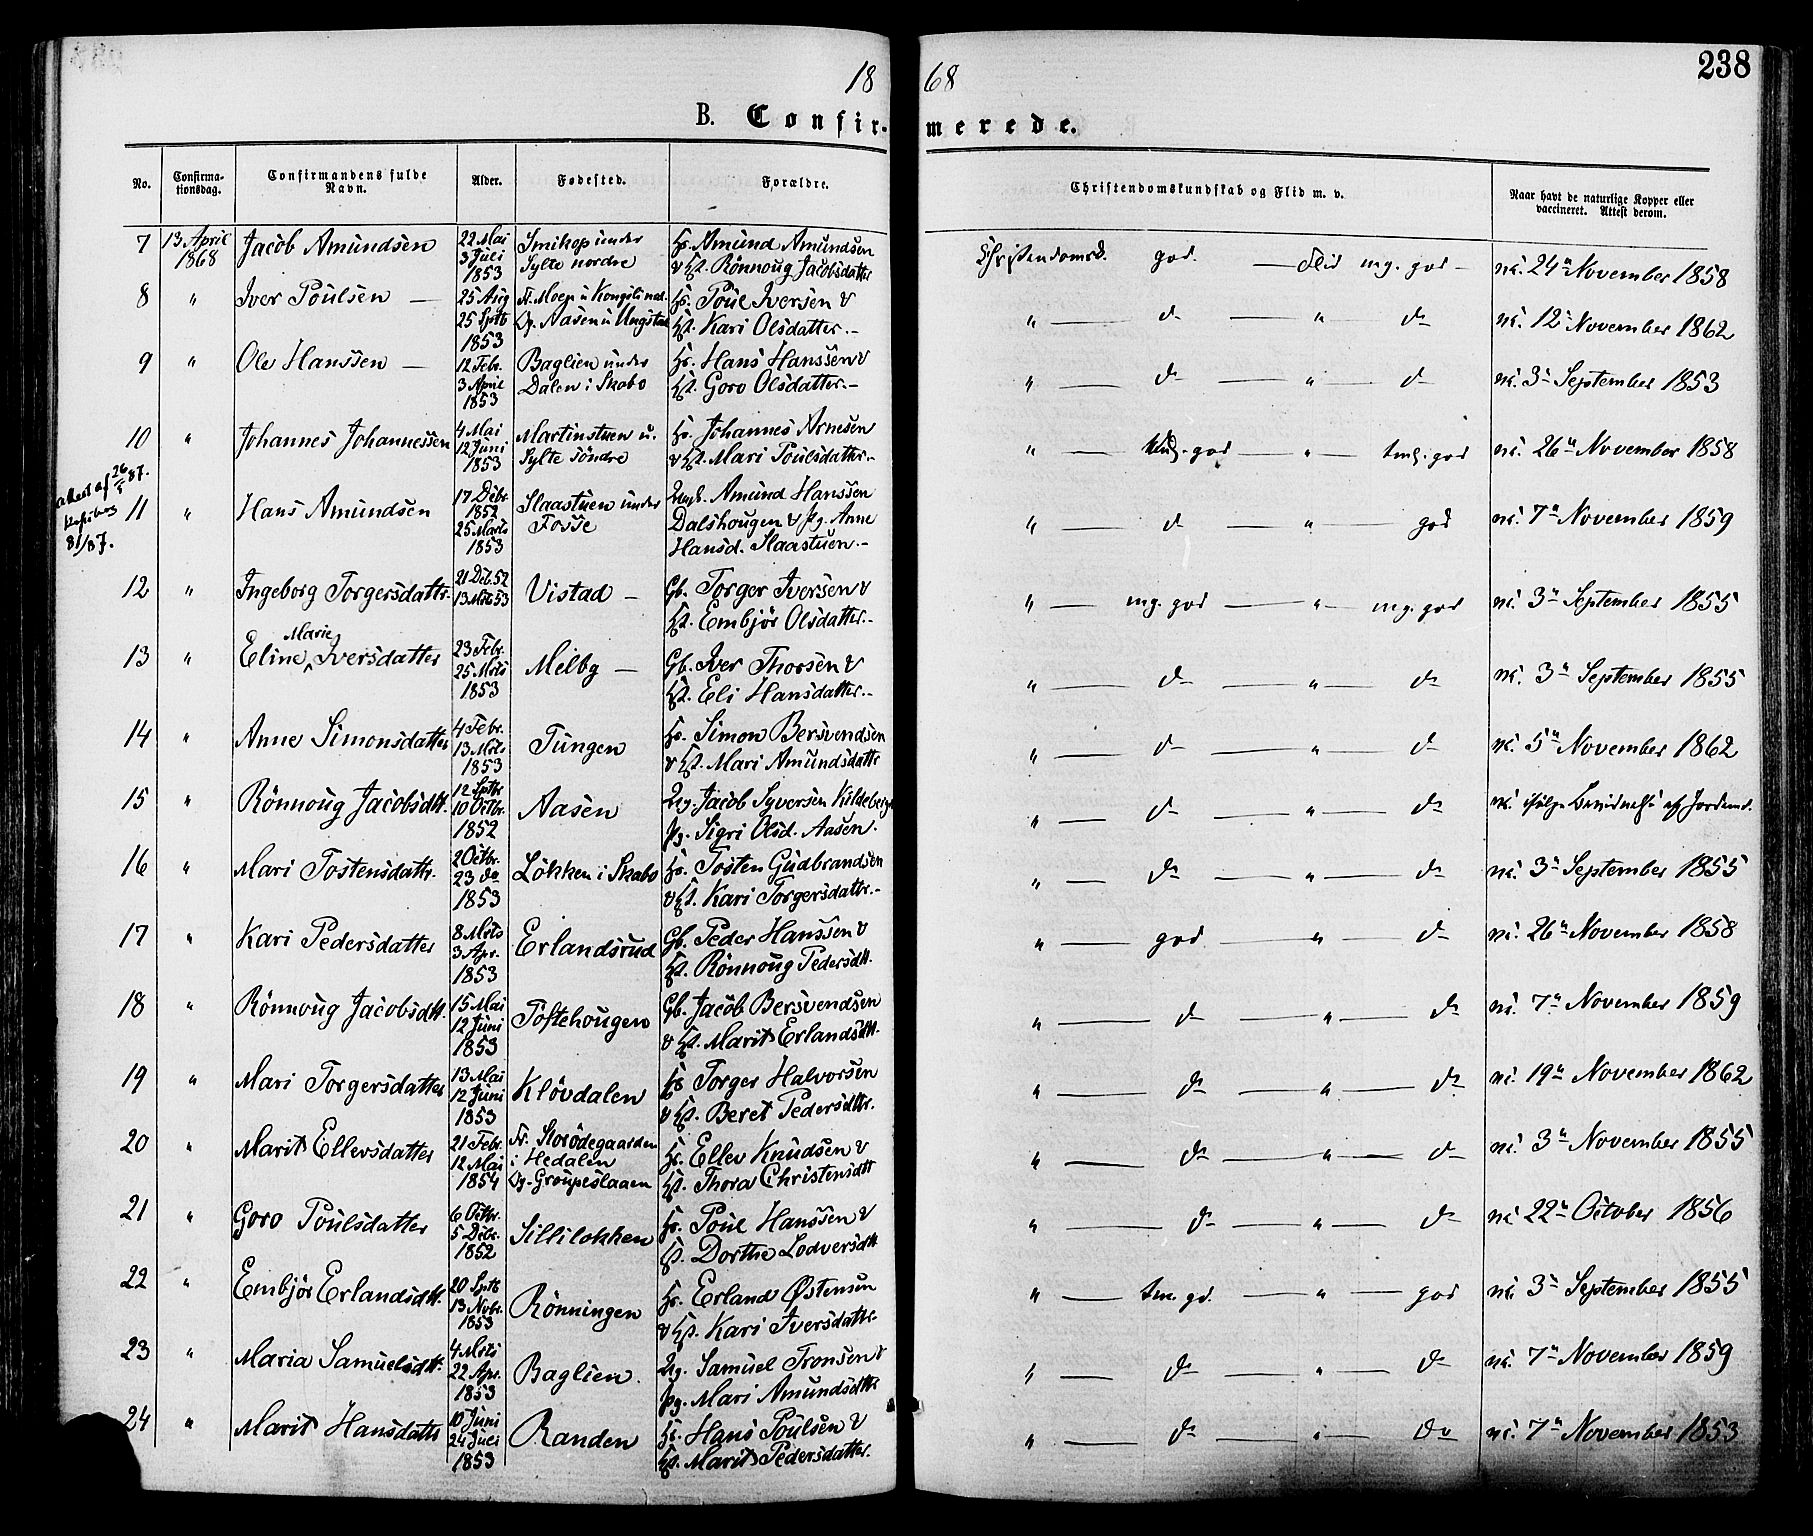 18 68
238
B. Confirmerede.
No. Confirmationsdag. Confirmandens fulde Navn. Alder. Fødested. Forældre. Christendomskundskab og Flid m. v. Naar havt de naturlige Kopper eller vaccineret. Attest derom.
7 13 April 1868 Jacob Amundsen 22 Mai 3 Juli 1853 Smikop under Sylte nordre Hs. Amund Amundsen & Hst. Rönnoug Jacobsdatter Christendomsk. god. — Flid mg. god — vc. 24de November 1858
8 " Iver Poulsen — 25 Aug 25 Sptb 1853 Fr. Moen u Kongsli nod. Og. Aasen u Ungstad Hs. Poul Iversen & Hst. Kari Olsdatter.— " — do — " — do vc. 12te November 1862
9 " Ole Hanssen — 12 Febr. 3 April 1853 Baglien under Dalen i Skabo Hs. Hans Hanssen & Hst. Goro Olsdatter.— " — do — " — do vc. 3de September 1853
10 " Johannes Johannessen 4 Mai 12 Juni 1853 Martinstuen u. Sylte söndre Hs. Johannes Arnesen & Hst. Mari Poulsdatter.— " — tmg. god — " — tmg. god vc. 26de November 1858
attest af 26/5 87.
81/87.
11 " Hans Amundsen 17 Debr. 1852 25 Marts 1853 Slaastuen under Fosse Ungk. Amund Hanssen Dalshougen & Pg. Anne Hansd. Slaastuen.— " — do — " — god vc. 7de November 1859
12 " Ingeborg Torgersdattr. 21 Deb. 52 13 Mts 53 Vistad — Gb. Torger Iversen & Hst. Embjör Olsdatter.— " — mg. god — " — mg. god vc. 3de September 1855
13 " Eline Marie Iversdatter 23 Febr. 25 Mts 1853 Melby — Gb. Iver Thorsen & Hst. Eli Hansdatter.— " — do — " — do vc. 3de September 1855
14 " Anne Simonsdatter 4 Febr. 13 Mts 1853 Tungen Hs. Simon Bersvendsen & Hst. Mari Amundsdattr " — do — " — do vc. 5te November 1862
15 " Rönnoug Jacobsdtt. 12 Sptbr. 10 Octbr. 1852 Aasen Ug. Jacob Syversen Kildeberget Pg. Sigri Olsd. Aasen. " — do — " — do vc. ifölge Bevidnelse af Jordem.
16 " Mari Tostensdattr. 2 Octbr. 23 do 1853 Lökken i Skabo Hs. Tosten Gudbrandsen & Hst. Kari Torgersdattr.— " — do — " — do vc. 3de September 1855
17 " Kari Pedersdatter 8 Mts 3 Apr. 1853 Erlandsrud Gb. Peder Hanssen & Hst. Rönnoug Pedersdtt. " — god — " — do vc. 26de November 1858
18 " Rönnoug Jacobsdtt. 15 Mai 12 Juni 1853 Toftehougen Gb. Jacob Bersvendsen & Hst. Marit Erlandsdtt. " — do — " — do vc. 7de November 1859
19 " Mari Torgersdatter 13 Mai 12 Juni 1853 Klövdalen Hs Torger Halvorsen & Hst. Beret Pedersdttr. " — do — " — do vc. 19de November 1862
20 " Marit Ellevsdatter 21 Febr. 12 Mai 1854 Fr. Storödegaarden i Hedalen Og. Groupeslaaen Hs. Ellev Knudsen & Hst. Thora Christensdtt " — do — " — do vc. 3de November 1855
21 " Goro Poulsdatter 6 Octbr. 5 Debr. 1852 Sillilokken Hs. Poul Hanssen & Hst. Dorthe Lodversdtt " — do — " — do vc. 22de October 1856
22 " Embjör Erlandsdtt. 20 Sptb 13 Novbr. 1853 Rönningen Hs. Erland Østensen & Hst. Kari Iversdatter.— " — tm. gd. — " — god vc. 3de September 1855
23 " Maria Samuelsdtt. 4 Mts 22 Apr. 1853 Baglien. Ug. Samuel Tronsen & Pg. Mari Amundsdttr " — do — " — do vc. 7de November 1859
24 " Marit Hansdattr 10 Juni 24 Juli 1853 Randen Hs. Hans Poulsen & Hst. Marit Pedersdatter. " — do — " — do vc. 7de November 1853